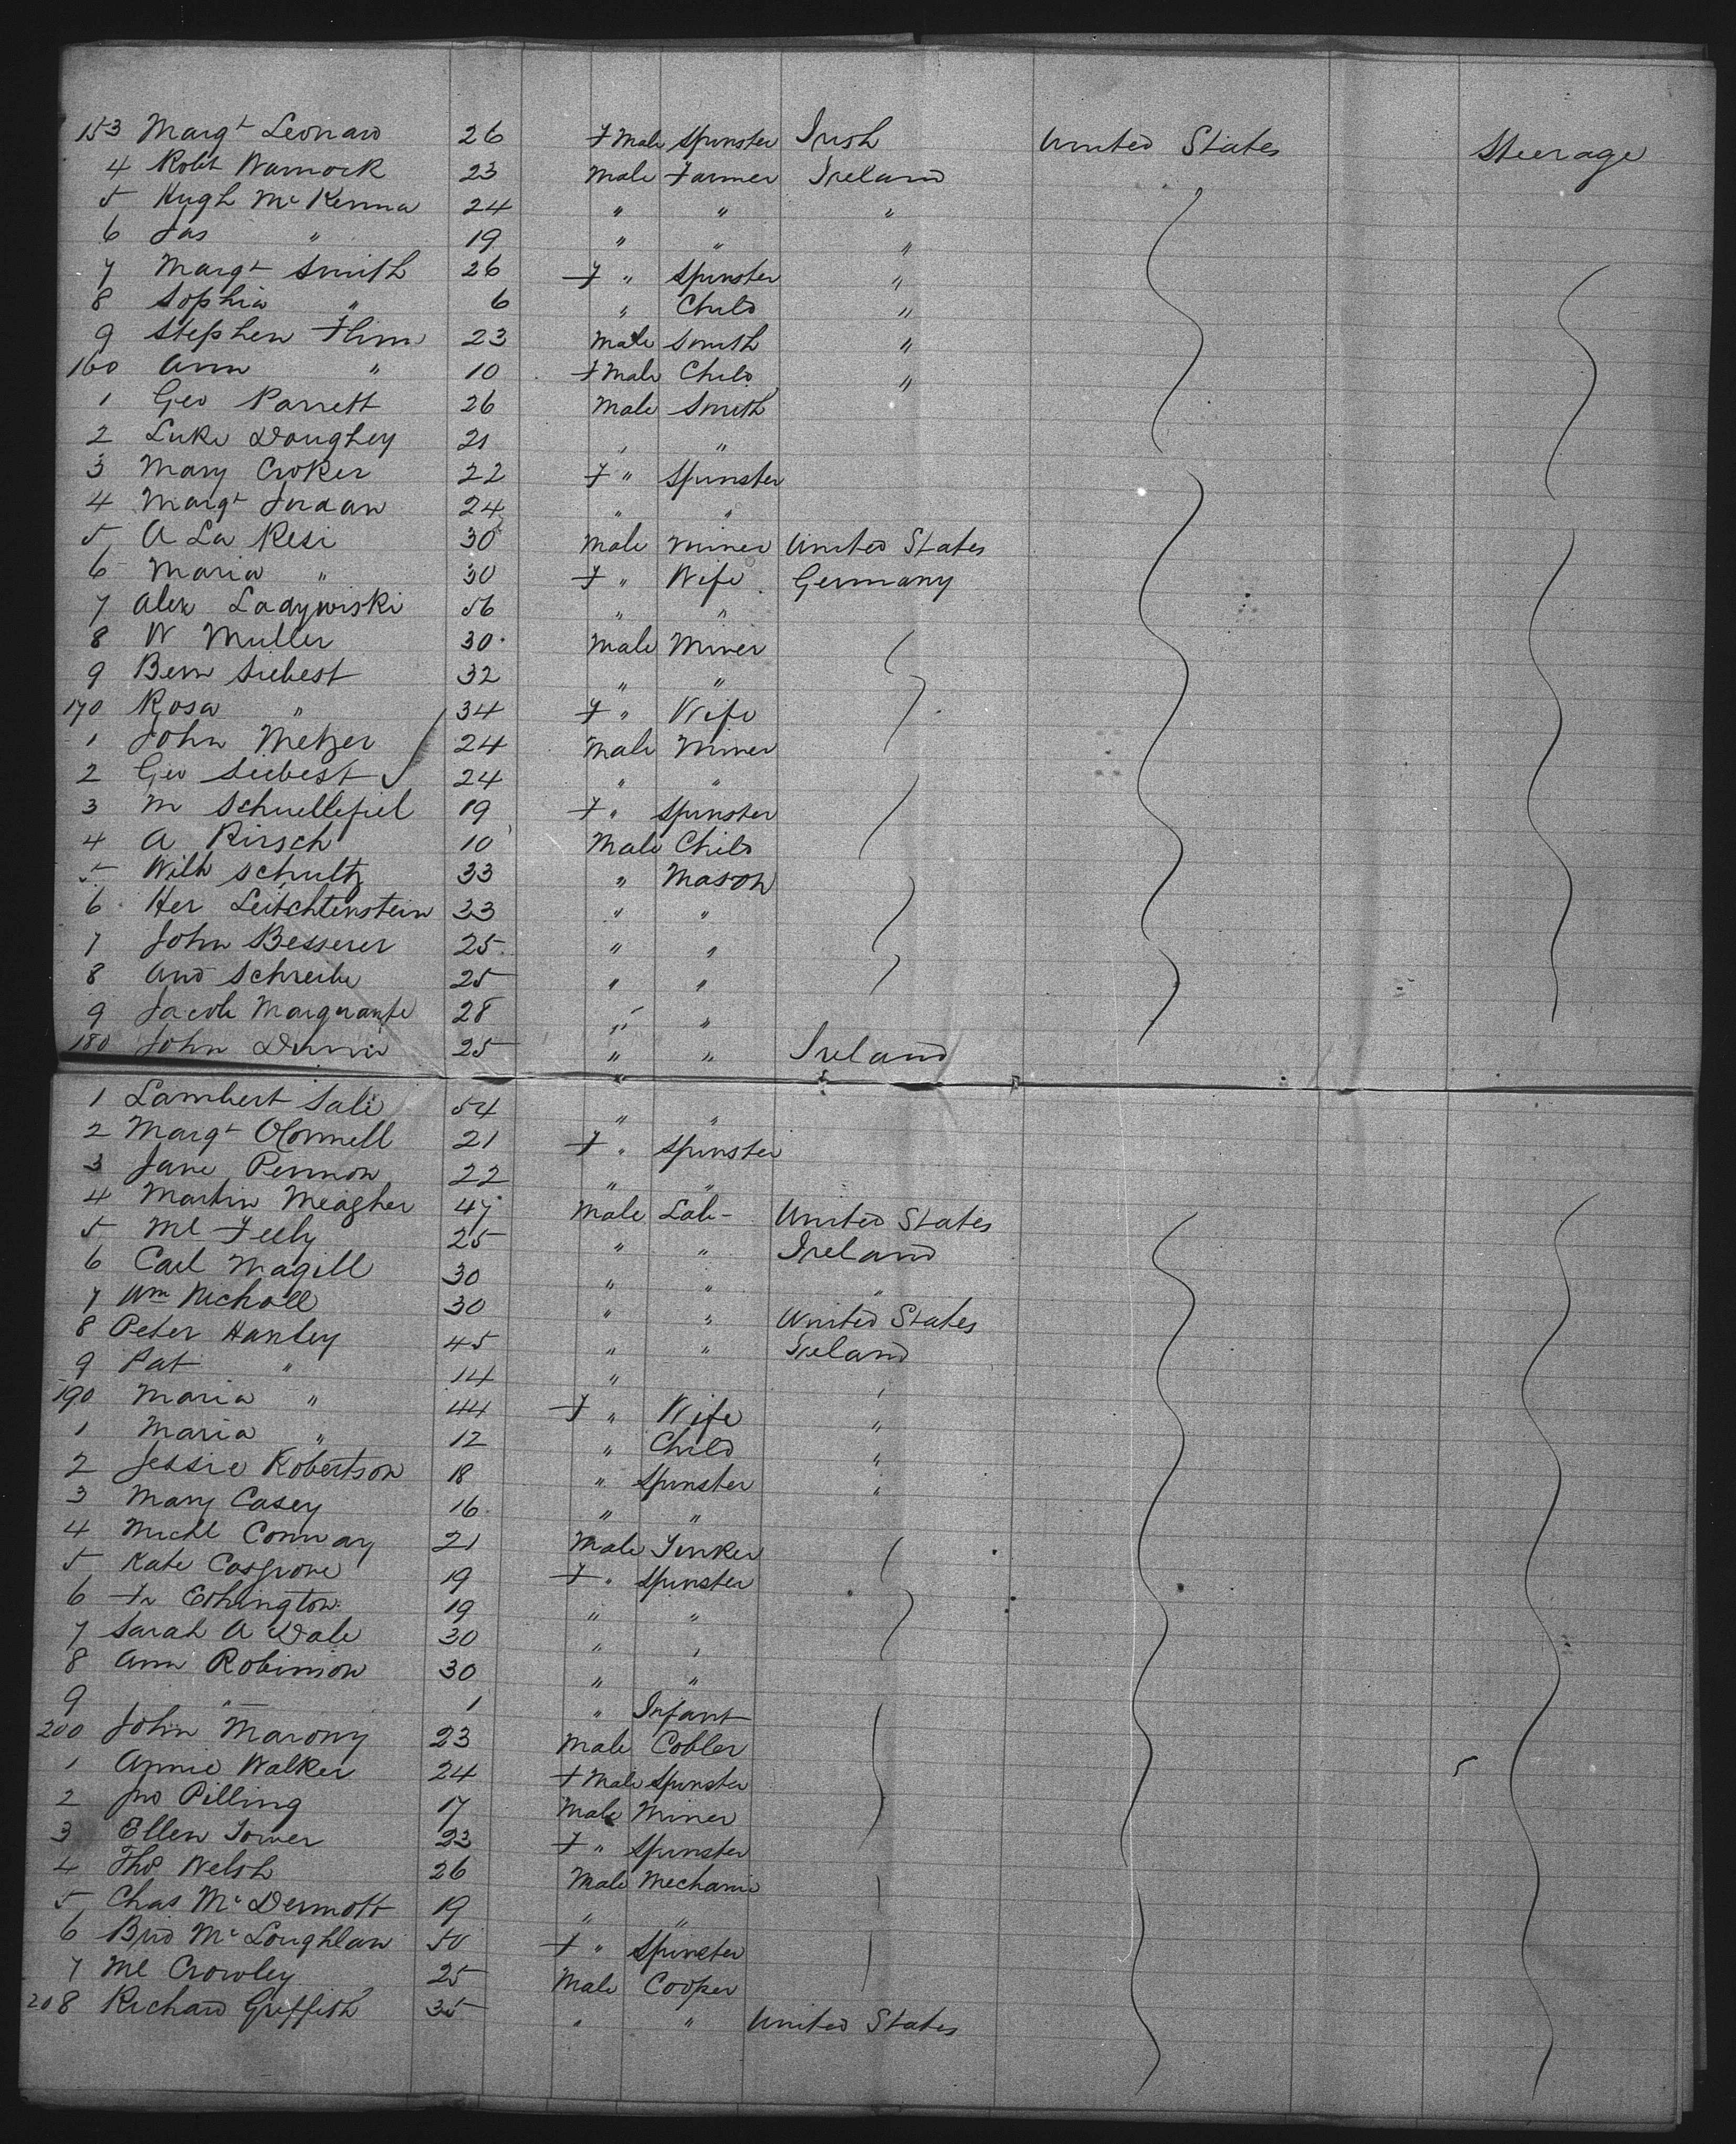 153 Margt Leonard 26 Fmale Spinster Irish United States Steerage
4 Robt Warnock 23 Male Farmer Ireland
5 Hugh McKenna 24 " " "
6 Jas " 19 " " "
7 Margt Smith 26 F " Spinster "
8 Sophia " 6 " Child "
9 Stephen Flinn 23 Male Smith "
160 Ann " 10 Fmale Child "
1 Geo Parrett 26 Male Smith
2 Luke Doughey 21 " "
3 Mary Croker 22 F " Spinster
4 Margt Jordan 24 " "
5 A La Resi 30 Male Miner United States
6 Maria " 30 F " Wife Germany
7 Alex Ladywiski 56 " "
8 W Muller 30 Male Miner
9 Bern Siebest 32 " "
170 Rosa " 34 F " Wife
1 John Metzer 24 Male Miner
2 Geo Siebest 24 " "
3 M Schuellefiel 19 F " Spinster
4 A Kirsch 10 Male Child
5 Wilh Schultz 33 " Mason
6 Her Leitchtenstein 33 " "
7 John Besserer 25 " "
8 And Schreibe 25 " "
9 Jacob 28 " "
180 John 25 " " Ireland
1 Lambert Sale 54 " "
2 Margt OConnell 21 F " Spinster
3 Jane Pennon 22 " "
4 Martin Meagher 47 Male Lab- United States
5 Ml Feely 25 " " Ireland
6 Carl Magill 30 " " "
7 Wm Nicholl 30 " " United States
8 Peter Hanley 45 " " Ireland
9 Pat " 14 " "
190 Maria " 44 F " Wife "
1 Maria " 12 " Child "
2 Jessie Robertson 18 " Spinster "
3 Mary Casey 16 " "
4 Michl Conway 21 Male Tinker
5 Kate Cosgrove 19 F " Spinster
6 Fr Ethington 19 " "
7 Sarah A Dale 30 " "
8 Ann Robinson 30 " "
9 " 1 " Infant
200 John Marony 23 Male Cobler
1 Annie Walker 24 Fmale Spinster
2 Jno Pilling 17 Male Miner
3 Ellen Tower 23 F " Spinster
4 Thos Welsh 26 Male Mechanic
5 Chas McDermott 19 " "
6 Brid McLoughlan 50 F " Spinster
7 Ml Crowley 25 Male Cooper
208 Richard Griffith 35 " " United States